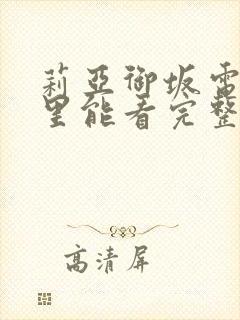 莉亚御坂雷
里能看完整
高清屏